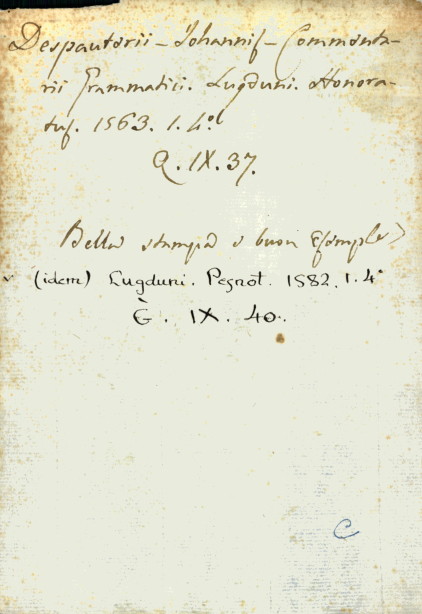 Despauterii - Johannis - Commenta-
rii Grammatici. Lugduni. Honora-
tus. 1563. 1. 4.º
Q. IX. 37.
Bella stampa e buon Esempl.
(idem) Lugduni. Pesnot. 1582. 1. 4º
È. IX. 40.
C